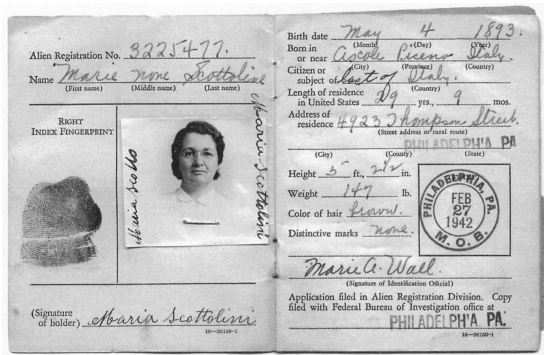 Alien Registration No. 3225477.
Name Marie none Scottoline
(First name) (Middle name) (Last name)
RIGHT
INDEX FINGERPRINT
Maria Scotto
Maria Scottolini
(Signature
of holder) Maria Scottolini
16—26150-1
Birth date May 4 1893.
(Month) (Day) (Year)
Born in
or near Ascole Piceno Italy.
(City) (Province) (Country)
Citizen or
subject of Italy.
(Country)
Length of residence
in United States 29 yrs., 9 mos.
Address of
residence 4923 Thompson Street
(Street address or rural route)
PHILADELPH'A PA
(City) (County) (State)
Height 5 ft., 2½ in.
Weight 147 lb.
Color of hair brown.
Distinctive marks none.
PHILADELPHIA, PA.
FEB
27
1942
M.O.B.
Marie A. Wall
(Signature of Identification Official)
Application filed in Alien Registration Division. Copy
filed with Federal Bureau of Investigation office at
PHILADELPH'A PA.
16—26150-1